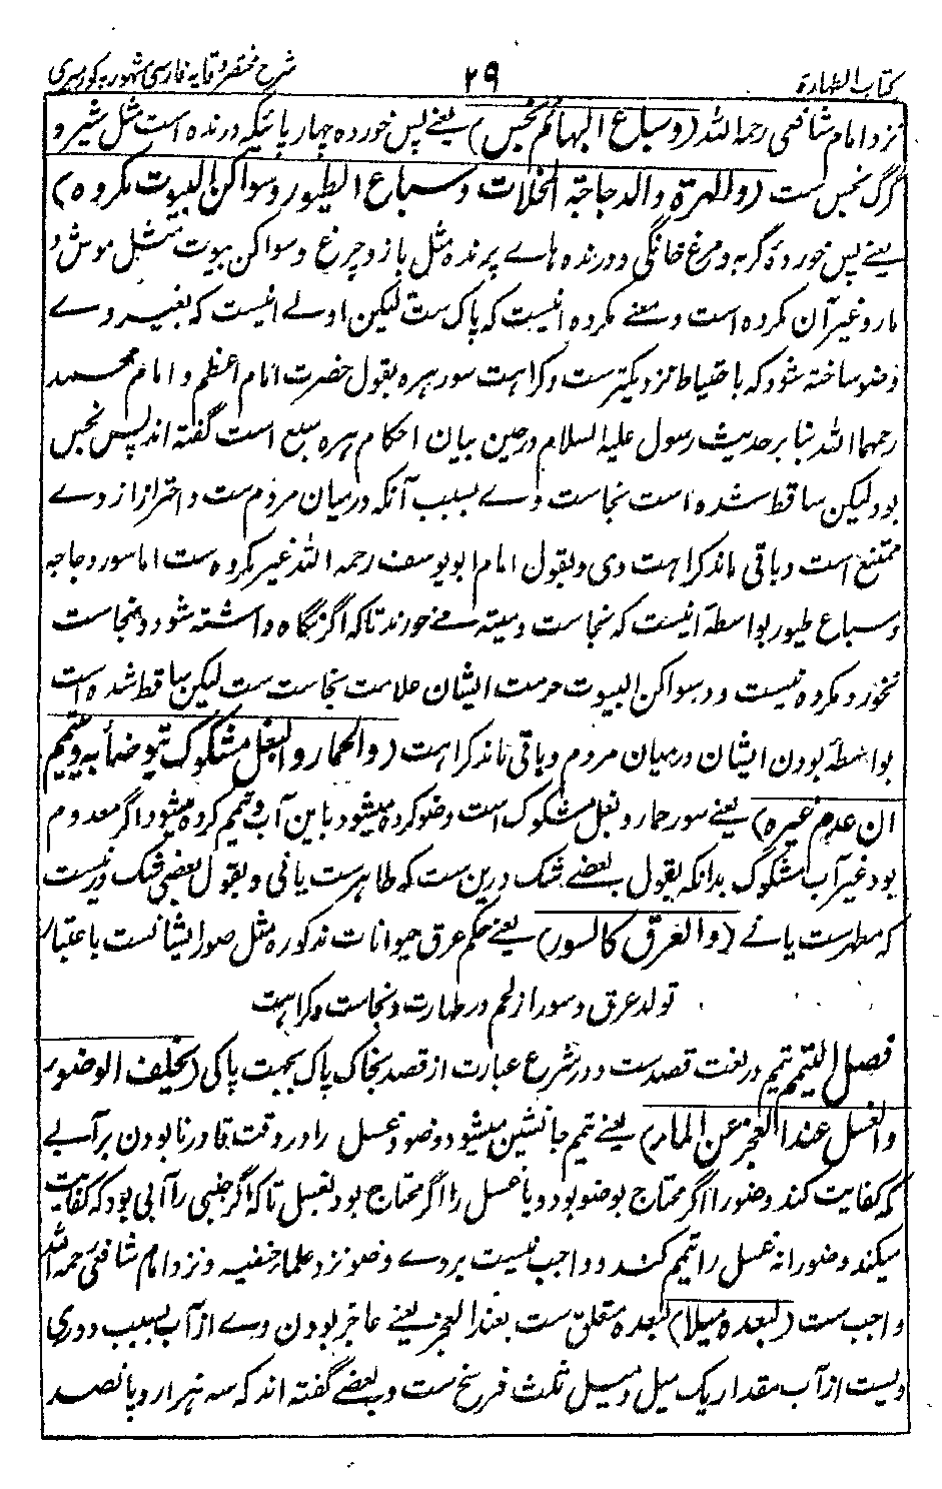 کتاب الطهارة ۲۹ شرح مختصر وقایه فارسی مشهور به کور میری
نزد امام شافعی رحمه الله (وسباع البهائم نجس) یعنے پس خورده چهار پائیکه درنده است مثل شیر و
گرگ نجس ست (والهرة والدجاجة المخلات وسباع الطیور وسواکن البیوت مکروه)
یعنے پس خوردهٔ گربه و مرغ خانگی و درنده هاے پرنده مثل باز و چرغ وسواکن بیوت مثل موش و
مار و غیر آن مکروه است و معنے مکروه اینست که پاک ست لیکن اولے انیست که بغیر وے
وضو ساخته شود که با حتیاط نزدیکترست وکراهت سور هره بقول حضرت امام اعظم و امام محمد
رحمهما الله بنا بر حدیث رسول علیه السلام در حین بیان احکام هره سبع است گفته اند پس نجس
بود لیکن ساقط شده است نجاست وے بسبب آنکه درمیان مردم ست و احتراز از وے
ممتنع است و باقی ماند کراهت وی و بقول امام ابو یوسف رحمه الله غیر مکروه ست اما سور دجاجه
وسباع طیور بواسطهٔ انیست که نجاست ومیته مے خورند تا که اگر نگاه داشته شود و نجاست
نخورد مکروه نیست و در سواکن البیوت حرمت ایشان علامت نجاست ست لیکن ساقط شده است
بواسطهٔ بودن ایشان درمیان مردم و باقی ماند کراهت (والحمار والبغل مشکوک یتوضأ به و یتیمم
ان عدم غیره) یعنے سور حمار و بغل مشکوک است وضو کرده میشود باین آب و تیمم کرده میشود اگر معدوم
بود غیر آب مشکوک بدانکه بقول بعضے شک درین ست که طاهرست یا نی و بقول بعضی شک درینست
که مطهرست یا نے (والعرق کالسور) یعنے حکم عرق حیوانات مذکوره مثل صور ایشانست باعتبار
تولد عرق و سور از لحم در طهارت و نجاست و کراهت
فصل التیمم تیمم در لغت قصدست و در شرع عبارت از قصد بخاک پاک بجهت پاکی (یخلف الوضوء
والغسل عند العجز عن الماء) یعنے تیمم جانشین میشود وضو و غسل را در وقت قادر نا بودن بر آبے
که کفایت کند وضو را اگر محتاج بوضو بود و یا غسل را اگر محتاج بود بغسل تا که اگر جنبی را آبی بود که کفایت
میکند وضو را نه غسل را تیمم کند و واجب نیست بروے وضو نزد علماء حنفیه و نزد امام شافعی رحمه الله
واجب ست (لبعده میلا) لبعده متعلق ست بعند العجز یعنے عاجز بودن وے از آب بسبب دوری
ویست از آب مقدار یک میل و میل ثلث فرسخ ست و بعضے گفته اند که سه هزار و پانصد